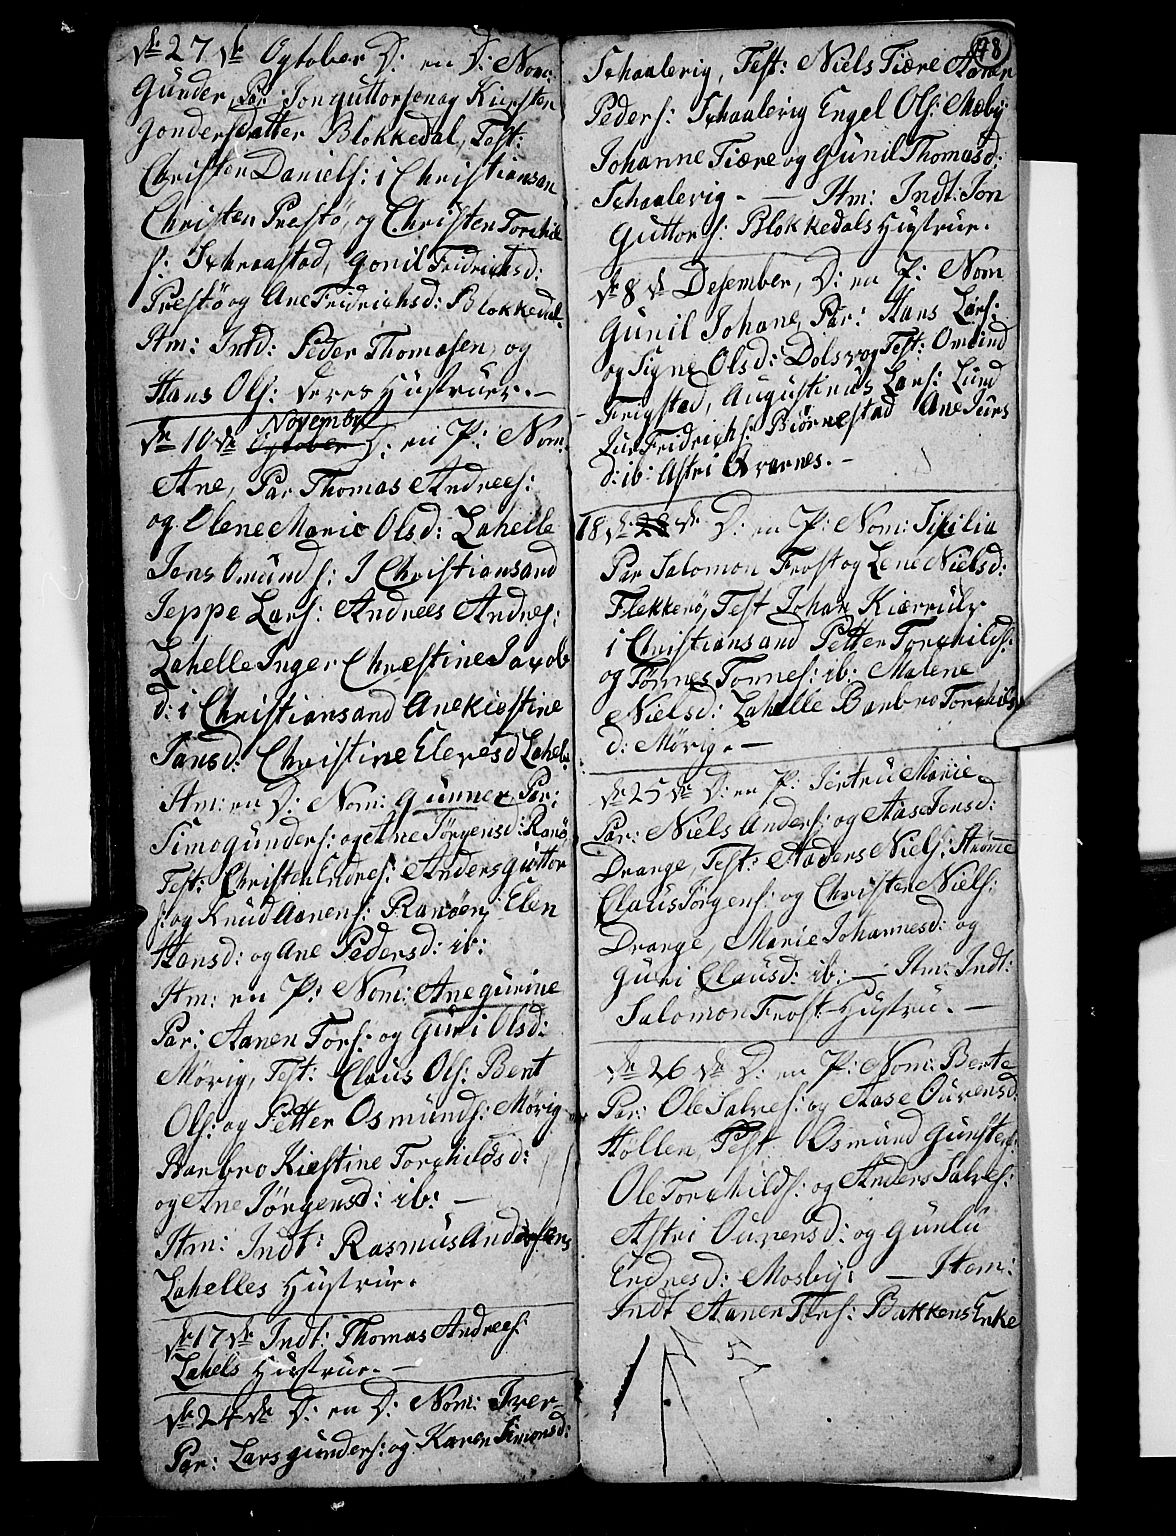 de 27 de Ogtober D: en D: Nom:
Gunder, Par: Jon Guttorsen og Kiersten
Gondersdatter Blokkedal, Test:
Christen Daniels: i Christiansan
Christen Prestö, og Christen Torchil
s: Schraastad, Gonil Fridrichsd:
Prestö og Ane Fridrichsd: Blokkedal.
Itm: Intd: Peder Thomasen, og
Hans Ols: deres Hustruer. –
de 10 de Ogtober Novembr D: en P: Nom:
Ane, Par Thomas Andrees:
og Olene Marie Olsd: Lahelle
Jens Omunds: I Christiansand
Jeppe Lars: Andrees Andres:
Lahelle Inger Chrestine Jacob
d: i Christiansand Ane Kiestine
Jansd: Christine Elevesd Lahel
Itm: en D: Nom: Gunner Par:
Simo Gunders: og Ane Jörgensd: Ranö
Test: Christen Endres: Anders Guttor
s: og Knud Aanens: Ranöen, Elen
Hansd: og Ane Pedersd: ib:
Itm: en P: Nom: Ane Gurine
Par: Aanen Tors: og Guri Olsd:
Mörig, Test: Claus Ols: Bent
Ols: og Petter Osmunds: Mörig
Barbro Kiestine Torchildsd:
og Ane Jörgensd: ib: –
Itm: Indt: Rasmus Andersens
Lahelles Hustrue.
de 17 de Indt: Thomas Andrees
Lahels Hustrue. –
de 24 de D: en D: Nom: Iver
Par: Lars Gunders: og Karen Simonsd:
48
Schaalevig, Test: Niels Tiære Aaner
Peders: Schaalevig Engel Ols: Mæby
Johanne Tiære og Gunil Thomasd:
Schaalevig. – Itm: Indt: Jon
Guttors: Blokkedals Hustrue.
de 8 de Desember, D: en P: Nom
Gunil Johane, Par: Hans Lars:
og Signe Olsd: Dolsvog Test: Omund
Frigsted, Augustinus Lars: Lund
Jur Fridrichs: Biörnestad Ane Jurs
d: ib: Astri Qvarnes. –
18 de 28 de D: en P: Nom: Sicilia
Par Salomon Frost og Lene Nielsd:
Flekkeröj Test Johan Kierrulf
i Christiansand Petter Torchilds:
og Tönnes Tonnes: ib: Malene
Nielsd: Lahelle Barbro Torchils
d: Mörig. –
de 25 de D: en P: Jertru Marie
Par: Niels Anders: og Aase Jensd:
Drange, Test: Aaders Niels: Strömme
Claus Jörgens: og Christen Niels:
Drange, Marie Johannesd: og
Guri Clausd: ib: – Itm: Indt:
Salomon Frost Hustrue. –
de 26 de D: en P: Nom: Berte
Par: Ole Salves: og Aase Ouvensd
Höllen, Test Osmund Gunstens:
Ole Torchilds: og Anders Salves:
Astri Ouvensd: og Gunlu
Endresd: Mosby: – Itom:
Indt Aanen Tors: Bakkens Enke